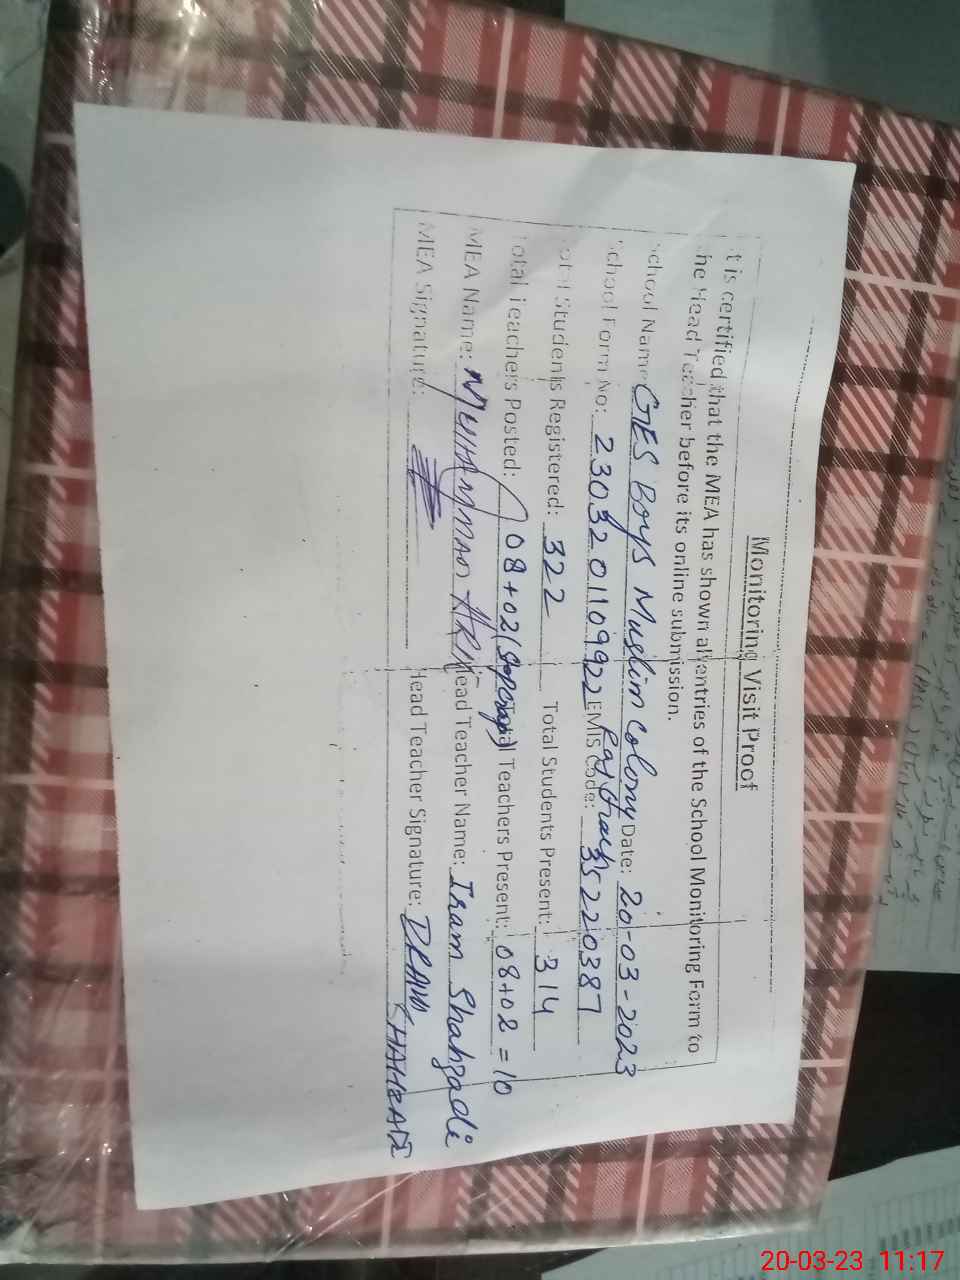 Monitoring Visit Proof
It is certified that the MEA has shown all entries of the School Monitoring Form to
the Head Teacher before its online submission.
School Name GES Boys Muslim Colony Date: 20-03-2023
School Form No: 23032 0110 9922 EMIS Code: 35220387
Total Students Registered: 322 Total Students Present: 314
Total Teachers Posted: 08+02 Total Teachers Present: 08+02 =10
MEA Name: MUHAMMAD Head Teacher Name: Iram Shahzadi
MEA Signature: Head Teacher Signature: IRAM SHAHZADI
20-03-23 11:17